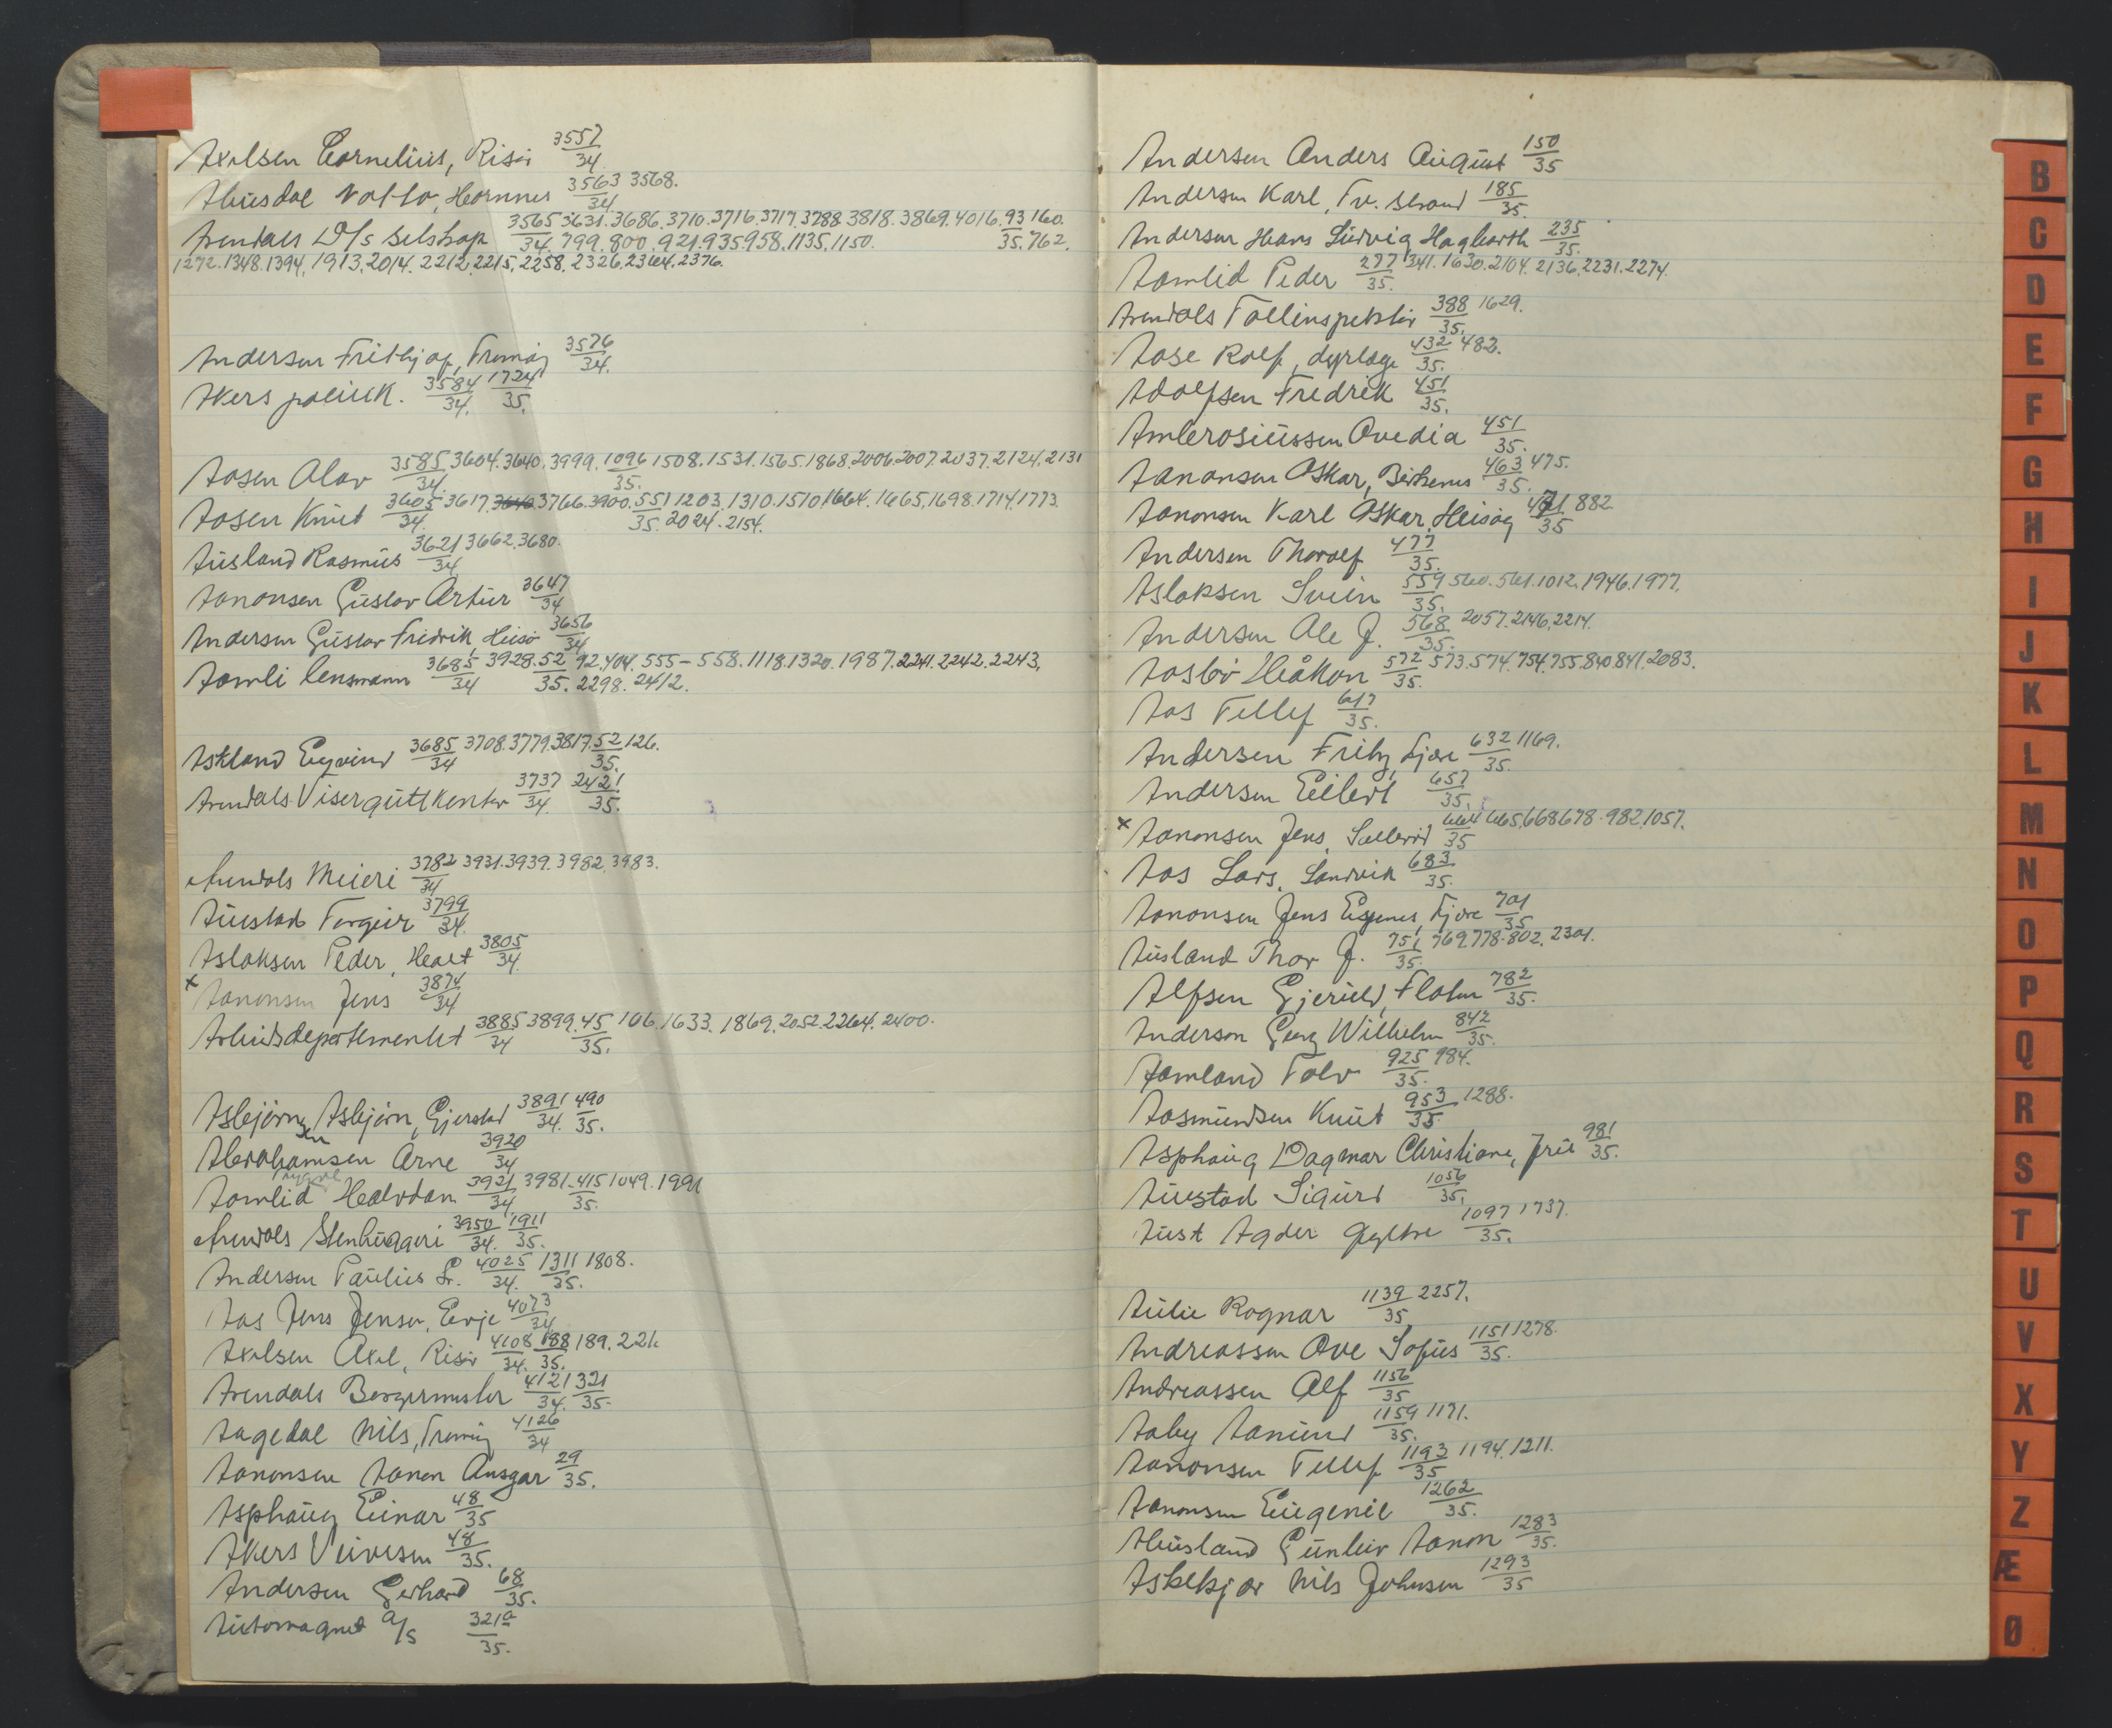 Axelsen Cornelius, Risør 3557/34
Ausdal Notto, Hornnes 3563/34 3568.
Arendals D/s selskap 3565/34 3631. 3686. 3710. 3716. 3717. 3788. 3818. 3869. 4016. 93/35 160.
799. 800. 921. 935 958. 1135. 1150. 762.
1272. 1348. 1394. 1913. 2014. 2212. 2215. 2258. 2326. 2364. 2376.
Andersen Frithjof, Tromøy 3576/34.
Akers polick. 3584/34. 1724/35.
Aasen Olav 3585/34. 3604. 3640. 3999. 1096/35. 1508. 1531. 1565. 1868. 2006. 2007. 2037. 2124. 2131
Aasen Knut 3605/34. 3617. 3766. 3900. 551/35. 1203. 1310. 1510 1664. 1665. 1698. 1714. 1773.
2024. 2154.
Ausland Rasmus 3621/34 3662. 3680.
Aanonsen Gustav Artur 3647/34
Andersen Gustav Fredrik, Hisø 3656/34
Aamli lensmann 3685/34 3928. 52/35. 92. 404. 555-558. 1118. 1320. 1987. 2241. 2242. 2243.
2298. 2412.
Askland Eyvind 3685/34 3708. 3779. 3817. 52/35. 126.
Arendals Viserguttkontor 3737/34. 2421/35.
Arendals Meieri 3782/34 3931. 3939. 3982. 3983.
Austad Torgeir 3799/34.
Aslaksen Peder, Holt 3805/34
x Aanonsen Jens 3874/34
Arbeidsdepartementet 3885/34 3899. 45/35. 106. 1633. 1869. 2052. 2264. 2400.
Asbjørnsen Asbjørn, Gjerstad 3891/34. 490/35.
Abrahamsen Arne 3920/34
Aamlid Halvdan 3921/34 3981. 415/35. 1049. 1991
Arendals Stenhuggeri 3950/34. 1911/35.
Andersen Paulus Fr. 4025/34. 1311/35. 1808.
Aas Jens Jensen, Evje 4073/34
Axelsen Axel, Risør 4108/34. 188/35. 189.
Arendals Borgermester 4121/34. 321/35.
Aagedal Nils, Tromøy 4126/34
Aanonsen Aanon Ansgar 29/35.
Asphaug Einar 48/35
Akers Veivesen 48/35.
Andersen Gerhard 68/35.
Automagnet a/s 321a/35.
Andersen Anders August 150/35
Andersen Karl, Tv. strand 185/35.
Andersen Hans Ludvig Hagbarth 235/35.
Aamlid Peder 277/35. 341. 1630. 2104. 2136. 2231. 2274.
Arendals Tollinspektør 388/35. 1629.
Aase Rolf, dyrlæge 432/35. 482.
Adolfsen Fredrik 451/35.
Ambrosiussen Ovedia 451/35.
Aanonsen Oskar, Birkenes 463/35. 475.
Aanonsen Karl Oskar, Hisøy 471/35 882
Andersen Thorolf 477/35.
Aslaksen Svein 559/35. 560. 561. 1012. 1946. 1977.
Andersen Ole J. 568/35. 2057. 2146. 2214.
Aasbø Håkon 572/35. 573. 574. 754. 755. 840 841. 2083.
Aas Tellef 617/35.
Andersen Fritz, Fjære 632/35. 1169.
Andersen Eilert 657/35.
x Aanonsen Jens, 664/35 665. 668 678. 982. 1057.
Aas Lars, Sandvik 683/35.
Aanonsen Jens Espenes, Fjære 701/35
Ausland Thor J. 751/35. 769. 778. 802. 2301.
Alfsen Gjeruld, Flaten 782/35.
Anderson Georg Wilhelm 842/35.
Aamland Tolv 925/35. 984.
Aasmundsen Knut 953/35 1288.
Asphaug Dagmar Christiane, frü 981/35.
Austad Sigurd 1056/35.
Aust Agder fylke 1097/35. 1737.
Aulie Ragnar 1139/35 2257.
Andreassen Ove Sofus 1151/35. 1278.
Andreassen Alf 1156/35
Aaby Aanund 1159/35. 1171.
Aanonsen Tellef 1193/35 1194. 1211.
Aanonsen Eugenie 1262/35.
Ausland Gunleiv Aanon 1283/35.
Askekjær Nils Johnsen 1293/35
B
C
D
E
F
G
H
I
J
K
L
M
N
O
P
Q
R
S
T
U
V
X
Y
Z
Æ
Ø